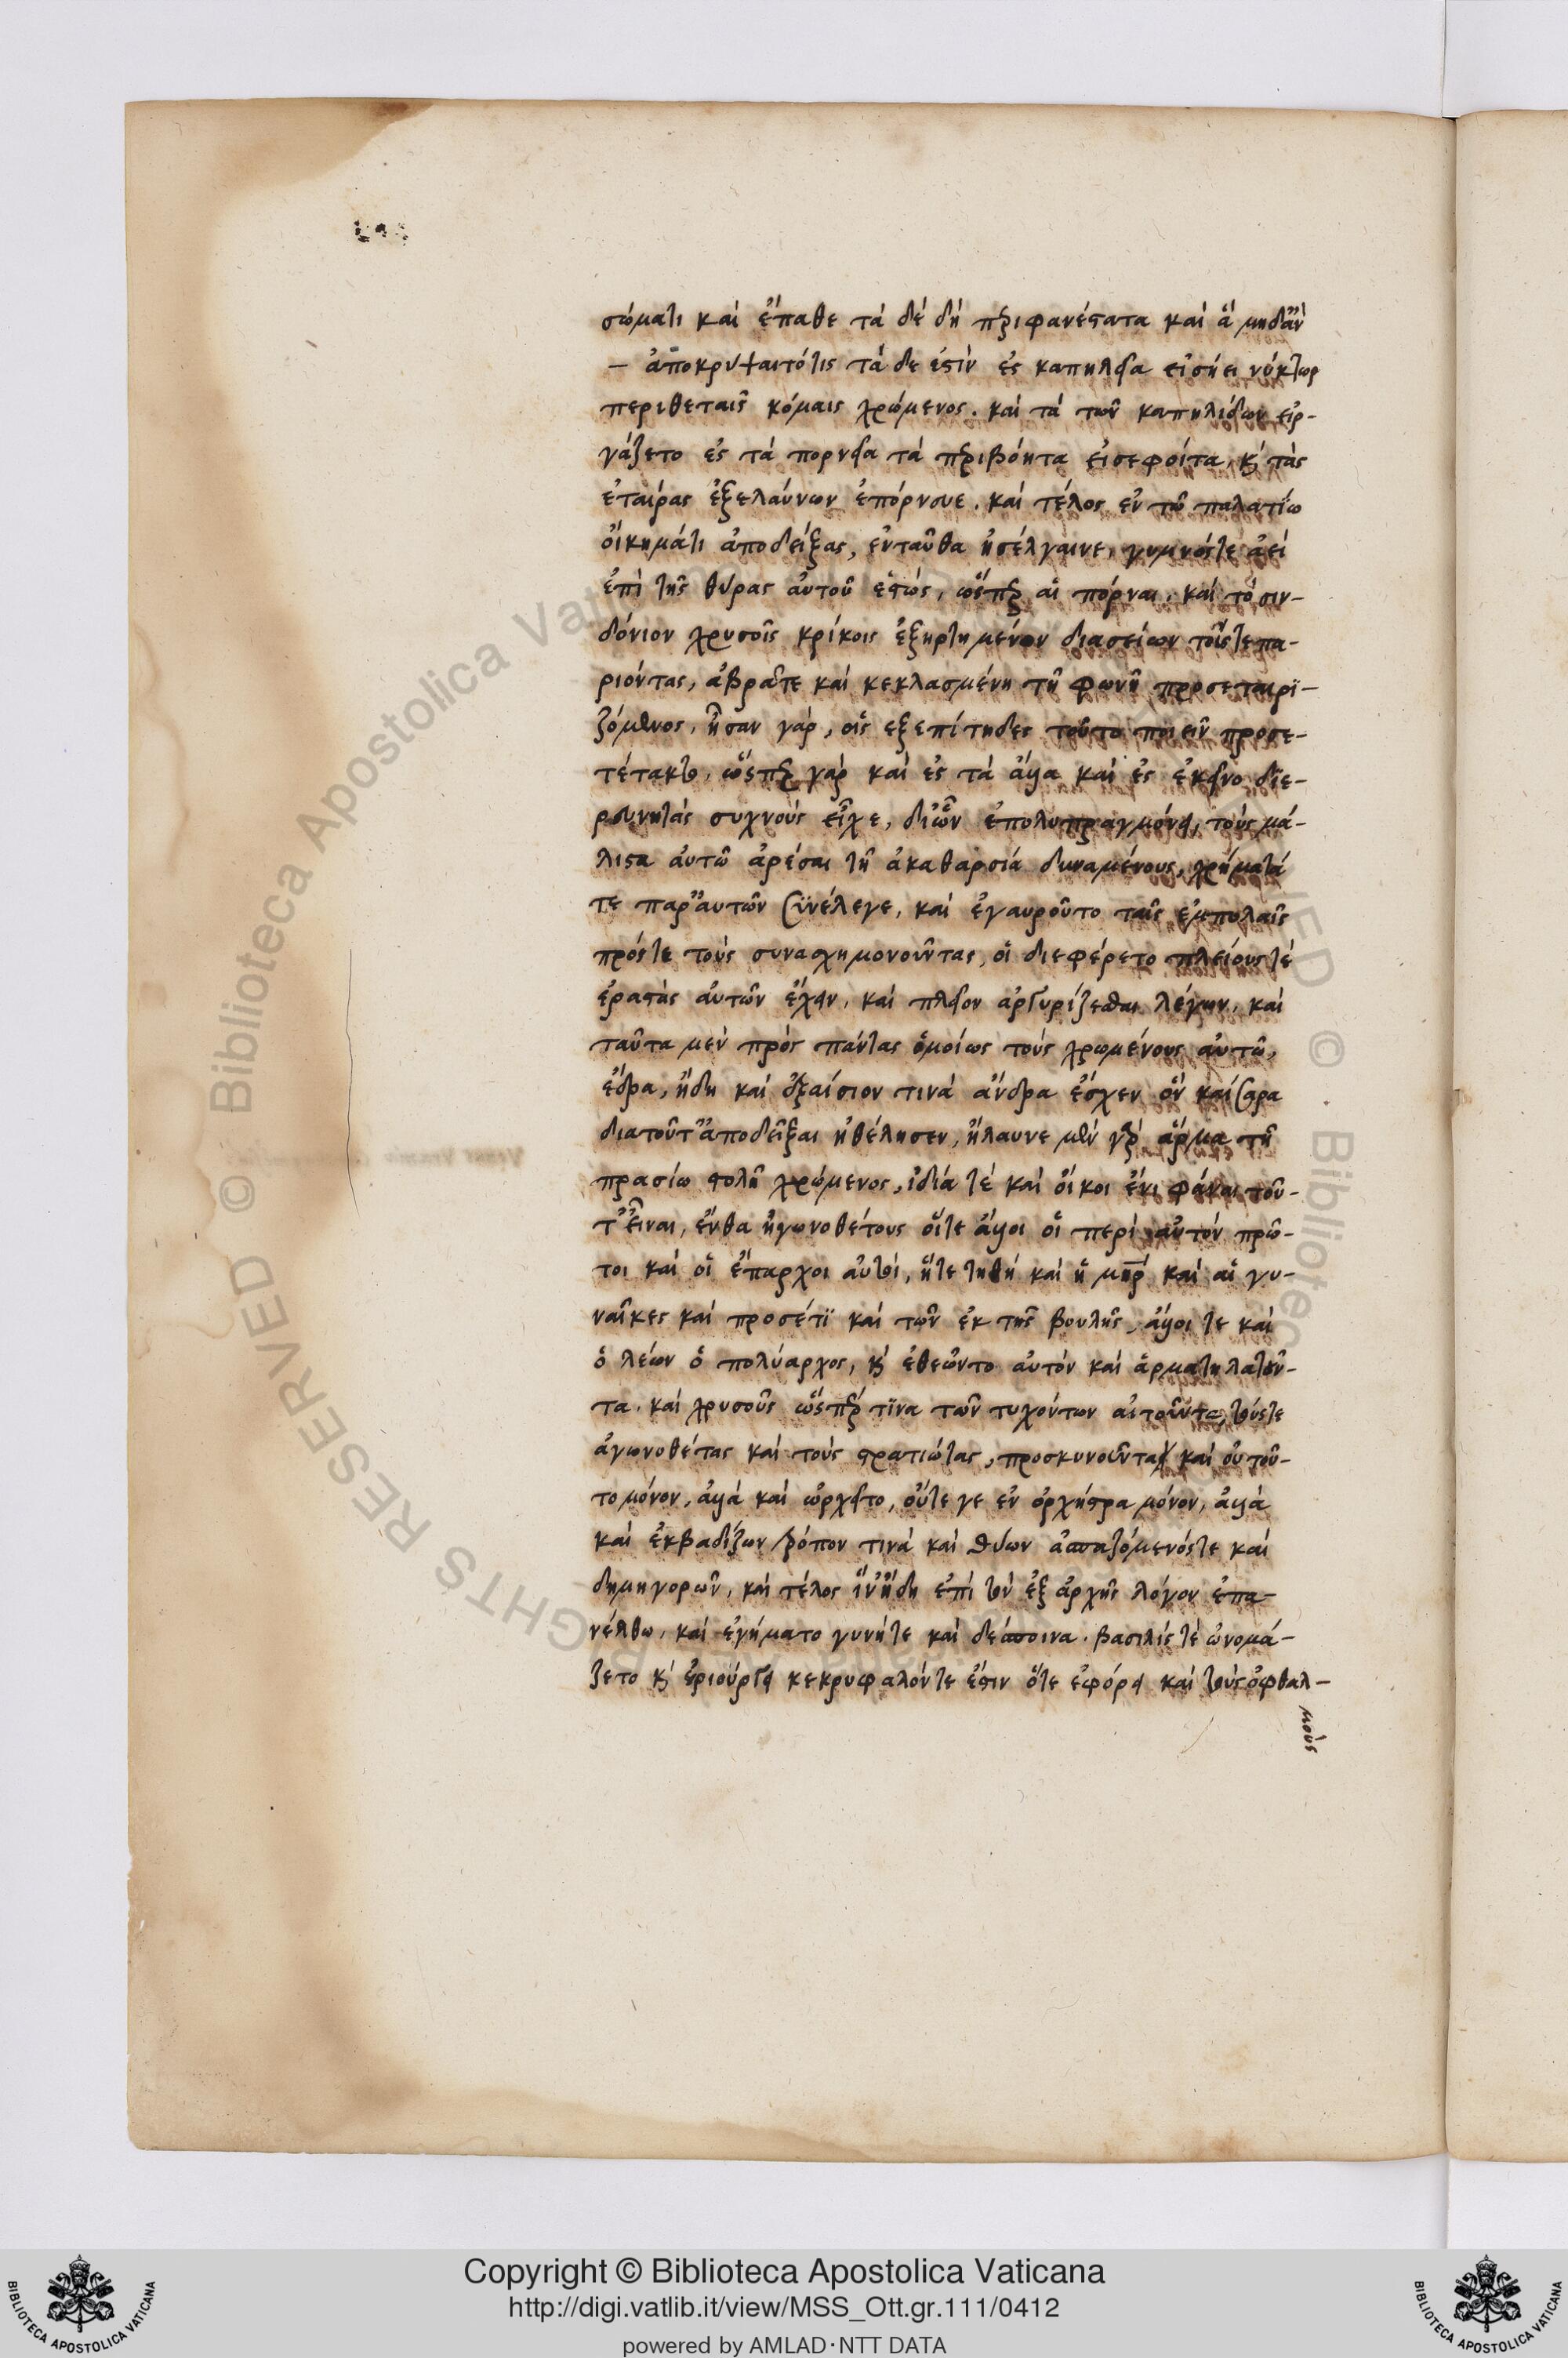 σώματι καὶ ἔπαθε τὰ δὲ δὴ περιφανέστατα καὶ ἃ μηδ' ἂν
— ἀποκρύψαιτό τις τά δε ἐστὶν ἐς καπηλεῖα εἰσήει νύκτωρ
περιθεταῖς κόμαις χρώμενος. καὶ τὰ τῶν καπηλίδων εἰρ-
γάζετο ἐς τὰ πορνεῖα τὰ περιβόητα εἰσεφοίτα, καὶ τὰς
ἑταίρας ἐξελαύνων ἐπόρνευε. καὶ τέλος ἐν τῶ παλατίω
οἴκημά τι ἀποδείξας, ἐνταῦθα ἠσέλγαινε, γυμνός τε ἀεὶ
ἐπὶ τῆς θύρας αὐτοῦ ἑστώς, ὥσπερ αἱ πόρναι, καὶ τὸ σιν-
δόνιον χρυσοῖς κρίκοις ἐξηρτημένον διασείων τοῖς τε πα-
ριόντας, ἁβρᾶ τε καὶ κεκλασμένη τῆ φωνῆ προσεταιρϊ-
ζόμενος, ἦσαν γὰρ, οἷς ἐξεπίτηδες τοῦτο ποιεῖν προσε-
τέτακτο, ὥσπερ γὰρ καὶ ἐς τὰ ἄλλα καὶ ἐς ἐκεῖνο διε-
ρευνητὰς συχνοὺς εἶχε, δι ὧν ἐπολυπραγμόνει, τοὺς μά-
λιστα αὐτῶ ἀρέσαι τῆ ἀκαθαρσία δυναμένους, χρήματά
τε παρ' αὐτῶν συνέλεγε, καὶ ἐγαυροῦτο ταῖς ἐμπολαῖς
πρός τε τοὺς συνασχημονοῦντας, οἱ διεφέρετο πλείους τὲ
ἐραστὰς αὐτῶν ἔχειν, καὶ πλεῖον ἀργυρίζεσθαι λέγων, καὶ
ταῦτα μὲν πρὸς πάντας ὁμοίως τοὺς χρωμένους αὐτῶ,
ἔδρα, ἤδη καὶ ἐξαίσιον τινὰ ἄνδρα ἔσχεν ὃν καίσαρα
διατοῦτ' ἀποδεῖξαι ἠθέλησεν, ἤλαυνε μὲν γὰρ ἅρμα τῆ
πρασίω στολῆ χρώμενος, ἰδία τὲ καὶ οἴκοι ἔνι φάναι τοῦ-
τ' εἶναι, ἔνθα ἠγωνοθέτους οἵ τε ἄλλοι οἱ περὶ αὐτὸν πρῶ-
τοι καὶ οἱ ἔπαρχοι αὐτοὶ, ἥ τε τηθὴ καὶ ἡ μηρ καὶ αἱ γυ-
ναῖκες καὶ προσέτϊ καὶ τῶν ἐκ τῆς βουλῆς, ἄλλοι τε καὶ
ὁ λέων ὁ πολύαρχος, καὶ ἐθεῶντο αὐτὸν καὶ ἁρματηλατοῦν-
τα. καὶ χρυσοῦς ὥσπερ τϊνα τῶν τυχόντων αἰτοῦντα, τούς τε
ἀγωνοθέτας καὶ τοὺς στρατιώτας, προσκυνοῦντα καὶ οὐ τοῦ-
το μόνον, ἀλλὰ καὶ ὠρχεῖτο, οὔτε γε ἐν ὀρχήστρα μόνον, ἀλλὰ
καὶ ἐκβαδίζων τρόπον τινὰ καὶ θύων ἀσπαζόμενός τε καὶ
δημηγορῶν, καὶ τέλος ἵν' ἤδη ἐπὶ τὸν ἐξ ἀρχῆς λόγον ἐπα-
νέλθω, καὶ ἐγήματο γυνή τε καὶ δέσποινα. βασιλίς τὲ ὠνομά-
ζετο καὶ ἐριούργει κεκρυφαλόν τε ἔστιν ὅτε ἐφόρει καὶ τοὺς ὀφθαλ-
μοὺς
Copyright © Biblioteca Apostolica Vaticana
http://digi.vatlib.it/view/MSS_Ott.gr.111/0412
powered by AMLAD·NTT DATA
BIBLIOTECA APOSTOLICA VATICANA
BIBLIOTECA APOSTOLICA VATICANA